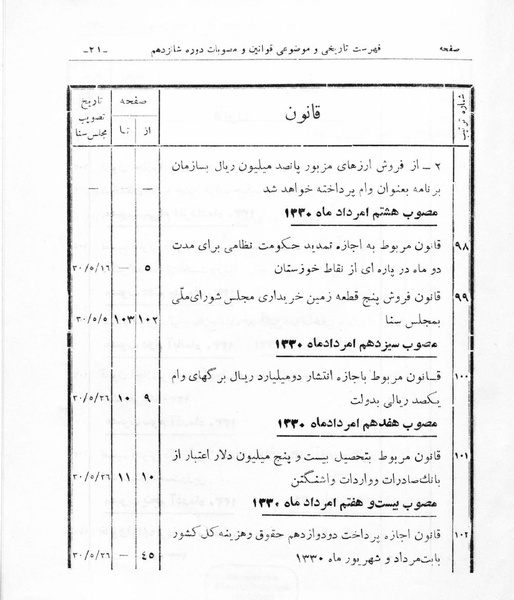 صفحه فهرست تاریخی و موضوعی قوانین و مصوبات دوره شانزدهم -۲۱-
شماره ترتیب قانون صفحه تاریخ تصویب مجلس سنا
از تا
۲ ــ از فروش ارزهای مزبور پانصد میلیون ریال بسازمان
برنامه بعنوان وام پرداخته خواهد شد — —
مصوب هشتم امرداد ماه ۱۳۳۰
۹۸ قانون مربوط به اجازه تمدید حکومت نظامی برای مدت
دو ماه در پاره ای از نقاط خوزستان ۵ — ۳۰/۵/۱۶
۹۹ قانون فروش پنج قطعه زمین خریداری مجلس شورای ملّی
بمجلس سنا ۱۰۲ ۱۰۳ ۳۰/۵/۵
مصوب سیزدهم امردادماه ۱۳۳۰
۱۰۰ قانون مربوط باجازه انتشار دومیلیارد ریال برگهای وام
یکصد ریالی بدولت ۹ ۱۰ ۳۰/۵/۲۶
مصوب هفدهم امردادماه ۱۳۳۰
۱۰۱ قانون مربوط بتحصیل بیست و پنج میلیون دلار اعتبار از
بانك صادرات وواردات واشنگتن ۱۰ ۱۱ ۳۰/۵/۲۶
مصوب بیست و هفتم امرداد ماه ۱۳۳۰
۱۰۲ قانون اجازه پرداخت دودوازدهم حقوق وهزینه کل کشور
بابت مرداد و شهریور ماه ۱۳۳۰ ۴۵ — ۳۰/۵/۲۶